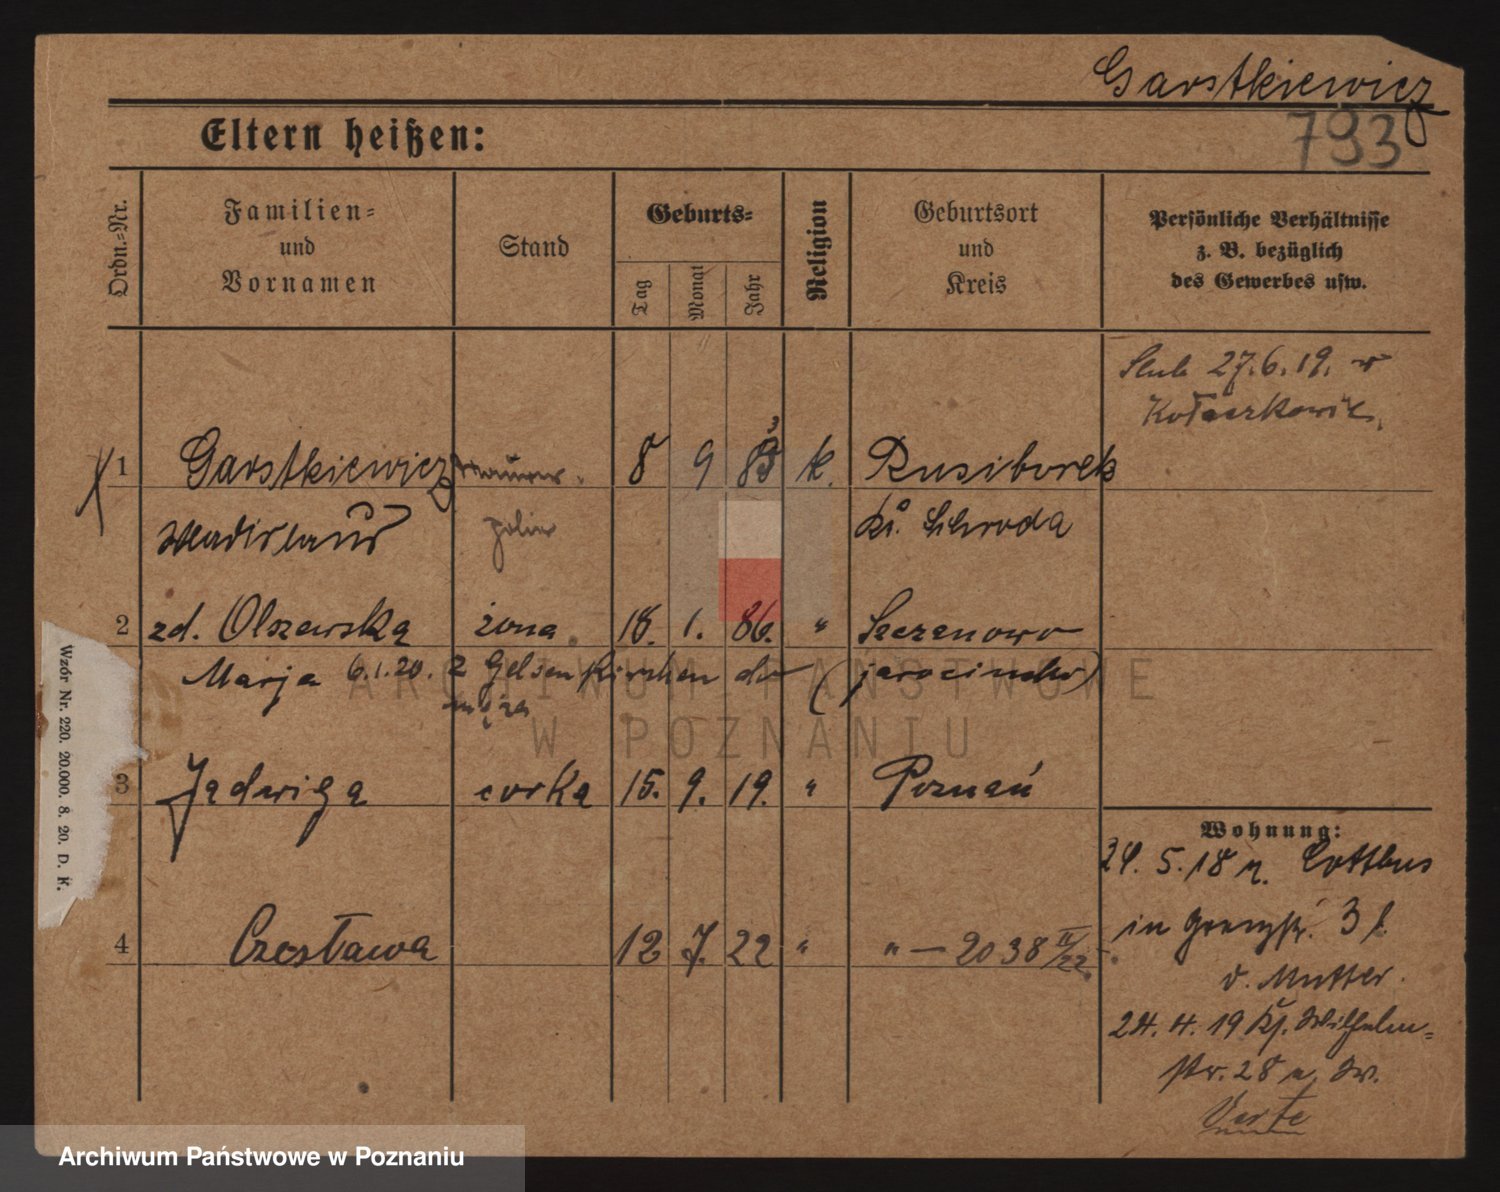 Garstkiewicz
793
Eltern heißen:
Ordn.-Nr.
Familien- und Vornamen
Stand
Geburts-
Tag
Monat
Jahr
Religion
Geburtsort und Kreis
Persönliche Verhältnisse z. B. bezüglich des Gewerbes usw.
27.6.19. w
1 Garstkiewicz Maurer 8 9 k. Rusiborek
Wladislaus polier Kr. Schroda
2 zd. Olszewska żona 18. 1. 86. " Szczonowo
Marja 6.1.20. z Gelsenkirchen do (jarocinsko)
męża
3 Jadwiga corka 15. 9. 19. " Poznań
Wohnung:
24. 5. 18 n. Cottbus
in Grenzstr. 3
4 Czesława 12 7. 22 " " — 2038 IV/22
v. Mutter.
24. 4. 19 Wilhelm-
str. 28
Verte
Wzór Nr. 220. 20.000. 8. 20. D. K.
ARCHIWUM PAŃSTWOWE
W POZNANIU
Archiwum Państwowe w Poznaniu